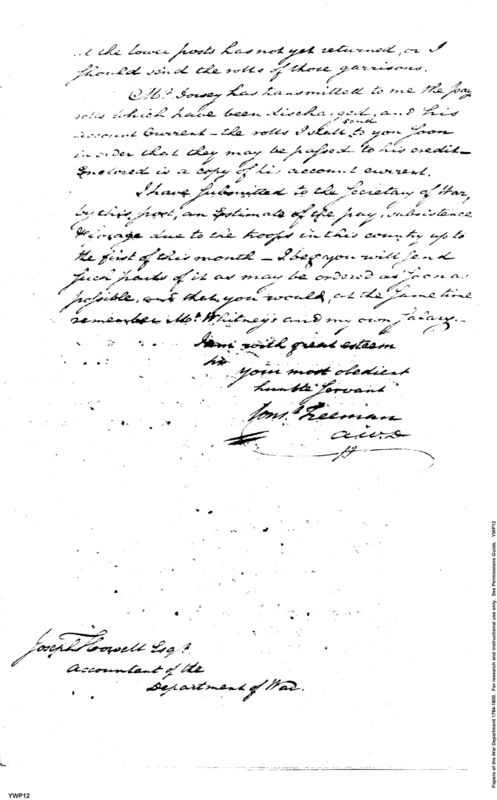 at the lower posts has not yet returned, or I
should send the rolls of those garrisons.
Mr. Dorsey has transmitted to me the pay
rolls which have been discharged, and his
account Current – the rolls I shall send to you soon
in order that they may be passed to his credit –
Enclosed is a copy of his account current.
I have submitted to the Secretary of War,
by this post, an Estimate of the pay, subsistence
& forage due to the troops in this country up to
the first of this month – I beg you will send
such parts of it as may be ordered as soon as
possible, and that you would, at the same time
remember Mr. Whitney's and my own Salary. –
I am with great esteem
Sir
your most obedient
humble Servant
Const. Freeman
A.W.D
Joseph Howell Esqr.
Accountant of the
Department of War.
YWP12
Papers of the War Department 1784-1800. For research and instructional use only. See Permissions Guide. YWP12